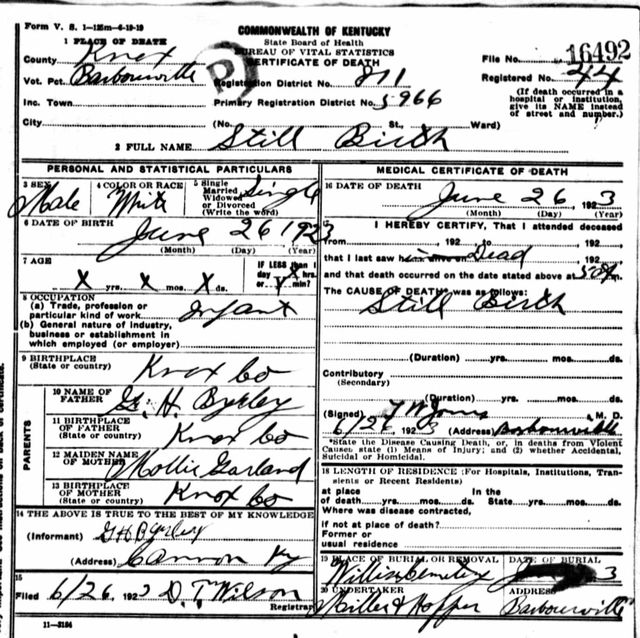 Form V. S. 1-125m-6-19-19
COMMONWEALTH OF KENTUCKY
State Board of Health
BUREAU OF VITAL STATISTICS
CERTIFICATE OF DEATH
1 PLACE OF DEATH
County Knox
Vot. Pct. Barbourville
Inc. Town
City
File No. 16492
Registration District No. 811
Registered No. 44
Primary Registration District No. 5966
(If death occurred in a hospital or institution, give its NAME instead of street and number.)
(No. St., Ward)
2 FULL NAME Still Birth
PERSONAL AND STATISTICAL PARTICULARS
3 SEX Male
4 COLOR OR RACE White
5 Single Married Widowed or Divorced (Write the word) Single
6 DATE OF BIRTH June 26 1923
(Month) (Day) (Year)
7 AGE X yrs. X mos. X ds.
IF LESS than 1 day X hrs. or X min?
8 OCCUPATION
(a) Trade, profession or particular kind of work Infant
(b) General nature of industry, business or establishment in which employed (or employer)
9 BIRTHPLACE (State or country) Knox Co
PARENTS
10 NAME OF FATHER G. H. Byerley
11 BIRTHPLACE OF FATHER (State or country) Knox Co
12 MAIDEN NAME OF MOTHER Mollie Garland
13 BIRTHPLACE OF MOTHER (State or country) Knox Co
14 THE ABOVE IS TRUE TO THE BEST OF MY KNOWLEDGE
(Informant) G H Byerley
(Address) Cannon Ky
15
Filed 6/26, 1923 D. T. Wilson
Registrar
11-3184
MEDICAL CERTIFICATE OF DEATH
16 DATE OF DEATH June 26, 1923
(Month) (Day) (Year)
I HEREBY CERTIFY, That I attended deceased
from 192 to 192
that I last saw h alive on Dead, 192
and that death occurred on the date stated above at m.
The CAUSE OF DEATH* was as follows:
Still Birth
(Duration) yrs. mos. ds.
Contributory
(Secondary)
(Duration) yrs. mos. ds.
(Signed) T W Jones M. D.
6/26 1923 (Address) Barbourville
*State the Disease Causing Death, or, in deaths from Violent Causes state (1) Means of Injury; and (2) whether Accidental, Suicidal or Homicidal.
18 LENGTH OF RESIDENCE (For Hospitals, Institutions, Transients or Recent Residents)
At place of death yrs. mos. ds. In the State yrs. mos. ds.
Where was disease contracted,
if not at place of death?
Former or
usual residence
19 PLACE OF BURIAL OR REMOVAL
DATE OF BURIAL
Cemetery 3
20 UNDERTAKER
ADDRESS
Miller & Hopper Barbourville